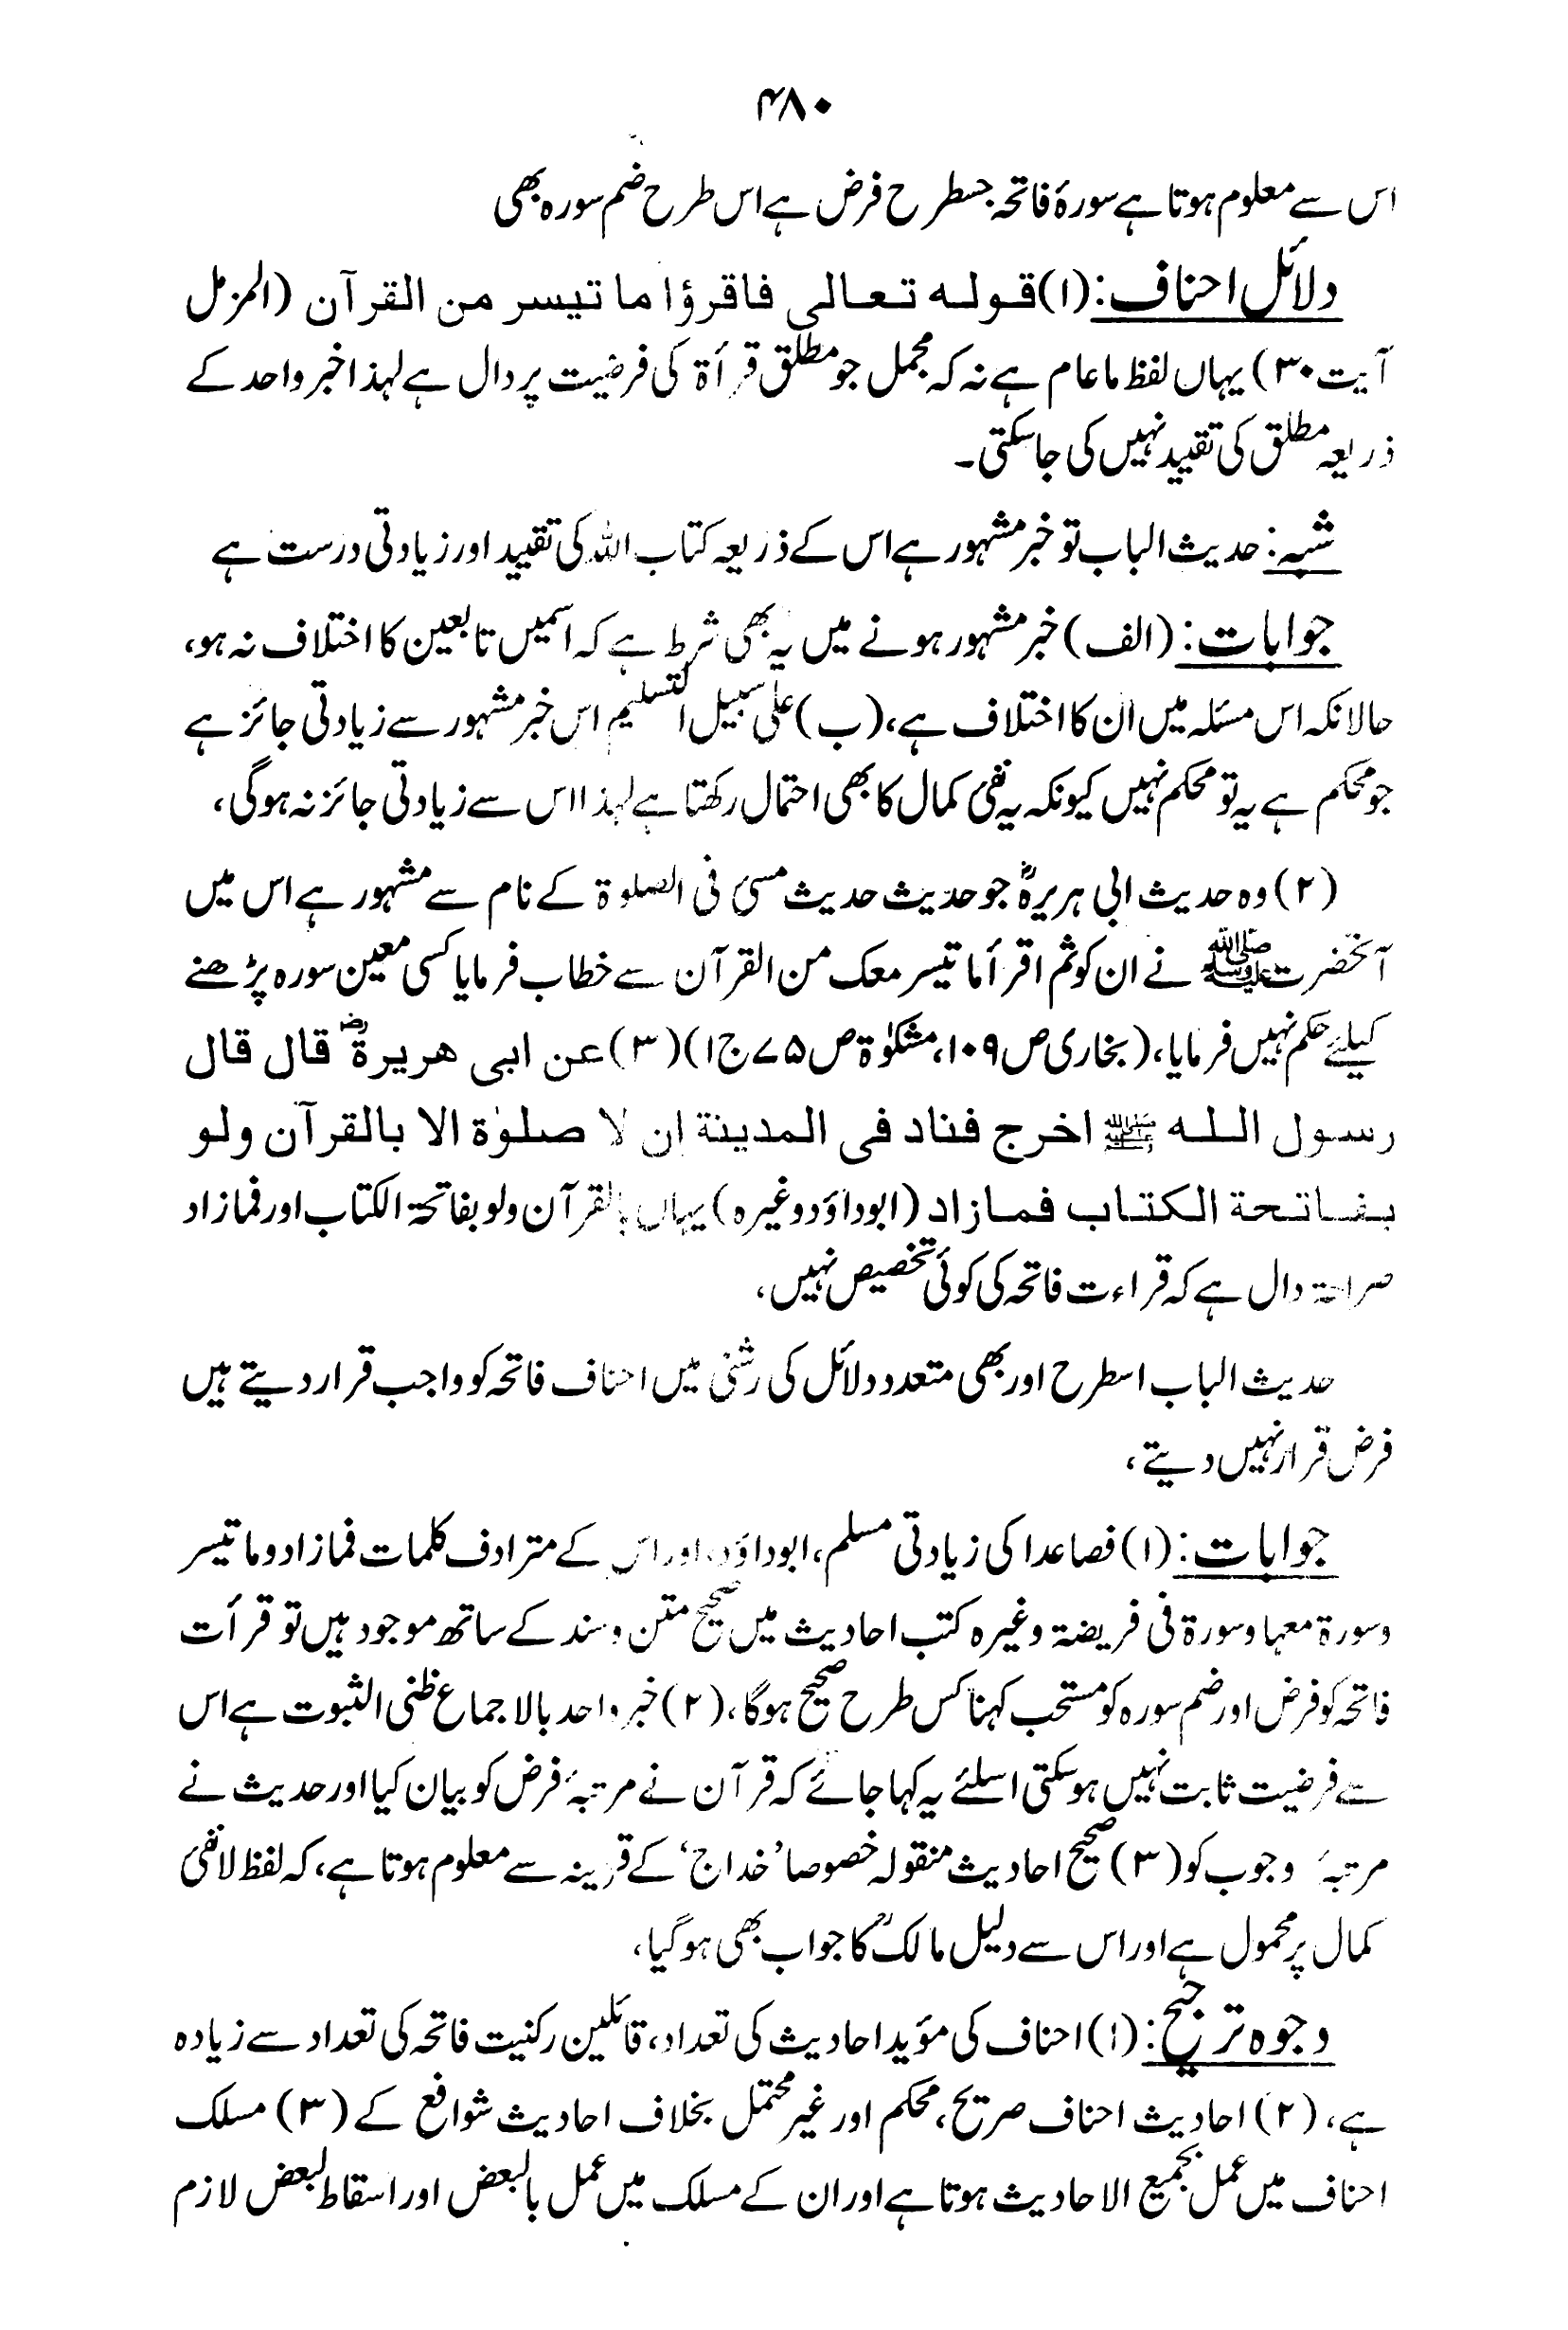 ۴۸۰
اس سے معلوم ہوتا ہے سورۂ فاتحہ جسطرح فرض ہے اس طرح ضم سورہ بھی
دلائل احناف: (۱) قولہ تعالی فاقرؤا ما تیسر من القرآن (المزمل
آیت ۳۰) یہاں لفظ ما عام ہے نہ کہ مجمل جو مطلق قرأۃ کی فرضیت پر دال ہے لہذا خبر واحد کے
ذریعہ مطلق کی تقیید نہیں کی جاسکتی۔
شبہ: حدیث الباب تو خبر مشہور ہے اس کے ذریعہ کتاب اللہ کی تقیید اور زیادتی درست ہے
جوابات: (الف) خبر مشہور ہونے میں یہ بھی شرط ہے کہ اسمیں تابعین کا اختلاف نہ ہو،
حالانکہ اس مسئلہ میں ان کا اختلاف ہے، (ب) علی سبیل التسلیم اس خبر مشہور سے زیادتی جائز ہے
جو محکم ہے یہ تو محکم نہیں کیونکہ یہ نفئ کمال کا بھی احتمال رکھتا ہے لہذا اس سے زیادتی جائز نہ ہوگی،
(۲) وہ حدیث ابی ہریرہؓ جو حدیث حدیث مسئ فی الصلوۃ کے نام سے مشہور ہے اس میں
آنحضرت ﷺ نے ان کو ثم اقرأ ما تیسر معک من القرآن سے خطاب فرمایا کسی معین سورہ پڑھنے
کیلئے حکم نہیں فرمایا، (بخاری ص ۱۰۹، مشکوٰۃ ص ۷۵ ج ۱) (۳) عن ابی ھریرۃؓ قال قال
رسول اللہ ﷺ اخرج فناد فی المدینۃ ان لا صلوٰۃ الا بالقرآن ولو
بفاتحۃ الکتاب فمازاد (ابوداؤد وغیرہ) یہاں بالقرآن ولو بفاتحۃ الکتاب اور فمازاد
صراحۃ دال ہے کہ قراءت فاتحہ کی کوئی تخصیص نہیں،
حدیث الباب اسطرح اور بھی متعدد دلائل کی رشنی میں احناف فاتحہ کو واجب قرار دیتے ہیں
فرض قرار نہیں دیتے،
جوابات: (۱) فصاعدا کی زیادتی مسلم، ابوداؤد، اور اس کے مترادف کلمات فمازاد وما تیسر
وسورۃ معہا وسورۃ فی فریضۃ وغیرہ کتب احادیث میں صحیح متن و سند کے ساتھ موجود ہیں تو قرأت
فاتحہ کو فرض اور ضم سورہ کو مستحب کہنا کس طرح صحیح ہوگا، (۲) خبر واحد بالاجماع ظنی الثبوت ہے اس
سے فرضیت ثابت نہیں ہوسکتی اسلئے یہ کہا جائے کہ قرآن نے مرتبۂ فرض کو بیان کیا اور حدیث نے
مرتبۂ وجوب کو (۳) صحیح احادیث منقولہ خصوصا ’خداج‘ کے قرینہ سے معلوم ہوتا ہے، کہ لفظ لا نفئ
کمال پر محمول ہے اور اس سے دلیل مالکؒ کا جواب بھی ہوگیا،
وجوہ ترجیح: (۱) احناف کی مؤید احادیث کی تعداد، قائلین رکنیت فاتحہ کی تعداد سے زیادہ
ہے، (۲) احادیث احناف صریح، محکم اور غیر محتمل بخلاف احادیث شوافع کے (۳) مسلک
احناف میں عمل بجمیع الاحادیث ہوتا ہے اور ان کے مسلک میں عمل بالبعض اور اسقاط لبعض لازم